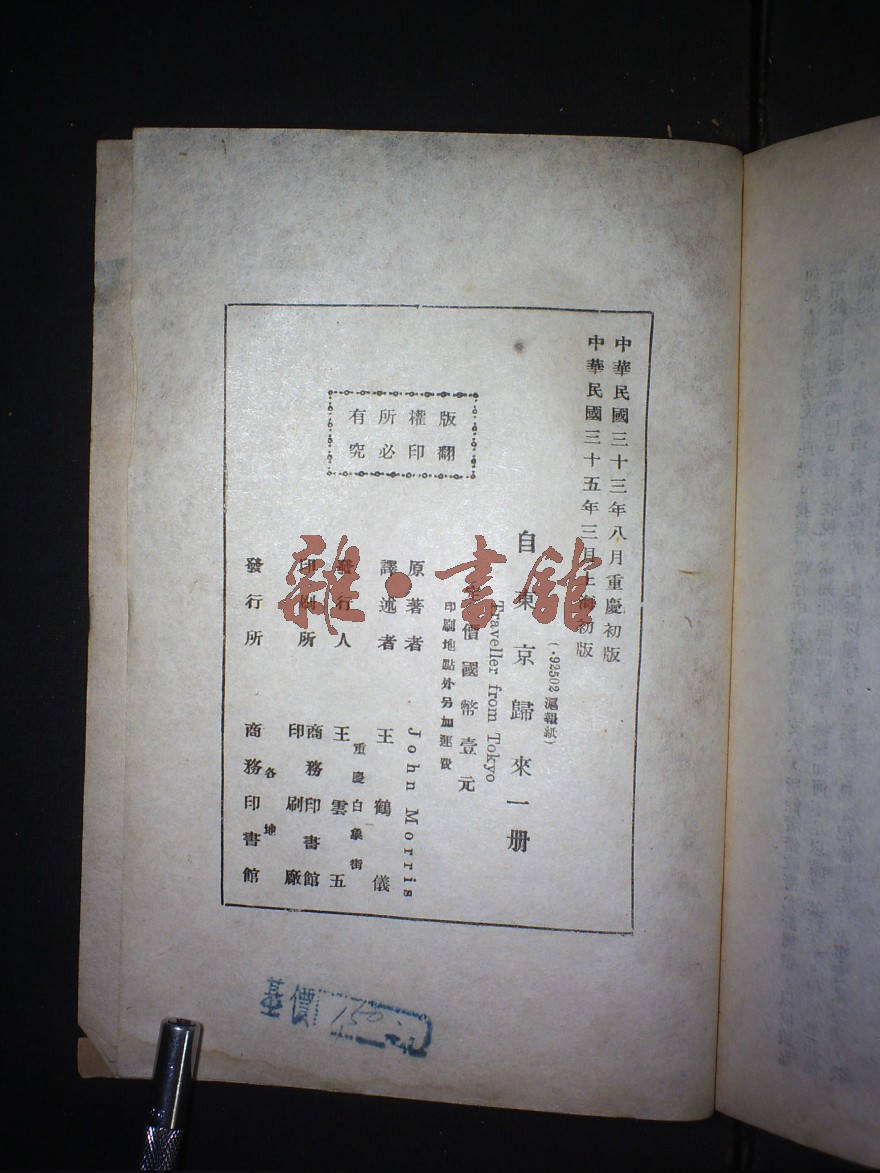 中華民國三十三年八月重慶初版
中華民國三十五年三月上海初版
(·92502 滬報紙)
自東京歸來一册
Traveller from Tokyo
定價國幣壹元
印刷地點外另加運費
原著者 John Morris
譯述者 王鶴儀
重慶白象街
發行人 王雲五
印刷所 商務印書館
印刷廠
各地
發行所 商務印書館
版權所有
翻印必究
雜·書館
基價 150